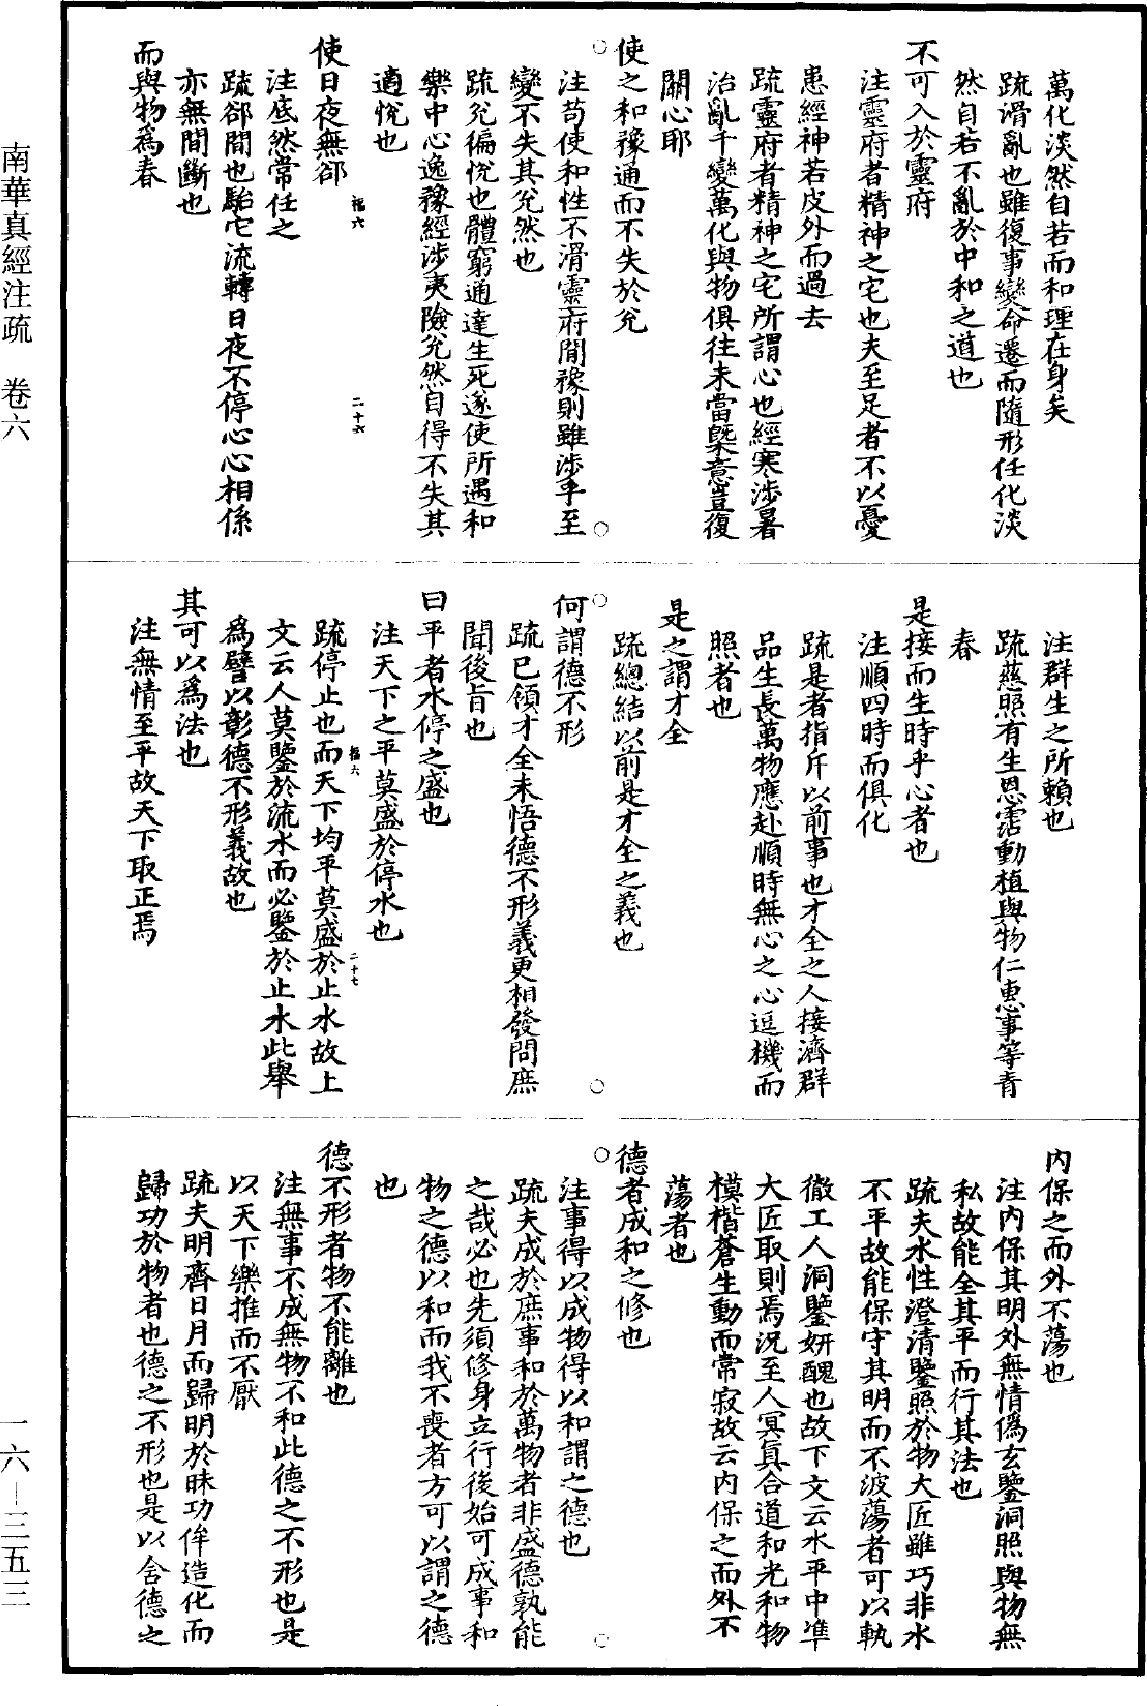 萬化淡然自若而和理在身矣
疏滑亂也雖復事變命遷而隨形任化淡
然自若不亂於中和之道也
不可入於靈府
注靈府者精神之宅也夫至足者不以憂
患經神若皮外而過去
疏靈府者精神之宅所謂心也經寒涉暑
治亂千變萬化與物俱往未當槩意豈復
關心耶
使之和豫通而不失於兊
注苟使和性不滑靈府閒豫則雖涉乎至
變不失其兊然也
疏兊徧悅也體窮通達生死遂使所遇和
樂中心逸豫經涉夷險兊然自得不失其
適悅也
福六 二十六
使日夜無郤
注底然常任之
疏郤間也駘它流轉日夜不停心心相係
亦無間斷也
而與物為春
注群生之所賴也
疏慈照有生恩霑動植與物仁惠事等青
春
是接而生時乎心者也
注順四時而俱化
疏是者指斥以前事也才全之人接濟群
品生長萬物應赴順時無心之心逗機而
照者也
是之謂才全
疏總結以前是才全之義也
何謂德不形
疏已領才全未悟德不形義更相發問庶
聞後旨也
曰平者水停之盛也
注天下之平莫盛於停水也
福六 二十七
疏停止也而天下均平莫盛於止水故上
文云人莫鑒於流水而必鑒於止水此舉
為譬以彰德不形義故也
其可以為法也
注無情至平故天下取正焉
內保之而外不蕩也
注內保其明外無情偽玄鑒洞照與物無
私故能全其平而行其法也
疏夫水性澄清鑒照於物大匠雖巧非水
不平故能保守其明而不波蕩者可以軌
徹工人洞鑒妍醜也故下文云水平中準
大匠取則焉況至人冥真合道和光和物
模楷蒼生動而常寂故云內保之而外不
蕩者也
德者成和之修也
注事得以成物得以和謂之德也
疏夫成於庶事和於萬物者非盛德孰能
之哉必也先須修身立行後始可成事和
物之德以和而我不喪者方可以謂之德
也
德不形者物不能離也
注無事不成無物不和此德之不形也是
以天下樂推而不厭
疏夫明齊日月而歸明於昧功侔造化而
歸功於物者也德之不形也是以含德之
南華真經注疏 卷六
一六—三五三